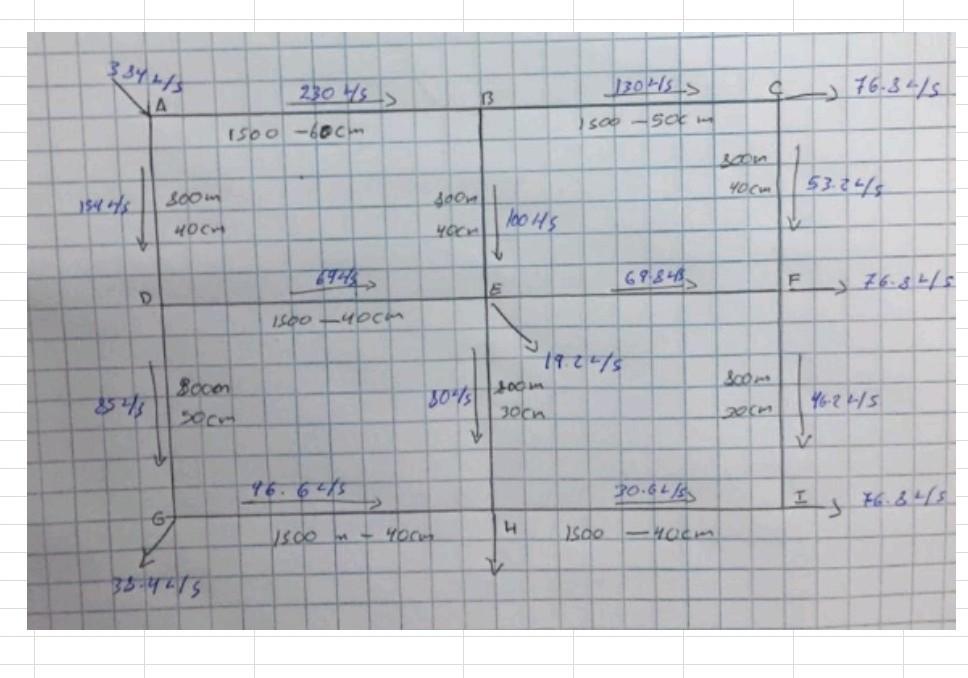 384 L/S
A
230 L/S
B
130 L/S
C
76.8 L/S
1500 - 60cm
1500 - 50cm
154 L/S
800m
40cm
800m
40cm
100 L/S
800m
40cm
53.2 L/S
D
69 L/S
E
69.8 L/S
F
76.8 L/S
1500 - 40cm
19.2 L/S
85 L/S
800m
50cm
80 L/S
800m
30cm
800m
46.2 L/S
G
46.6 L/S
30.6 L/S
I
76.8 L/S
1500 m - 40cm
H
1500 - 40cm
38.4 L/S